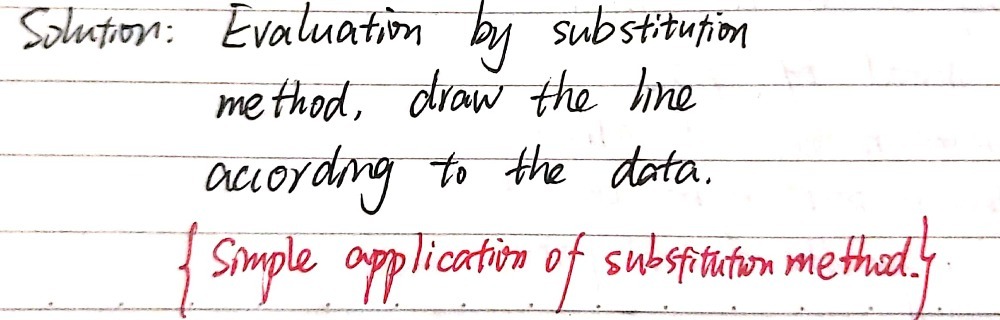 Solution: Evaluation by substitution
method, draw the line
according to the data.
{Simple application of substitution method.}